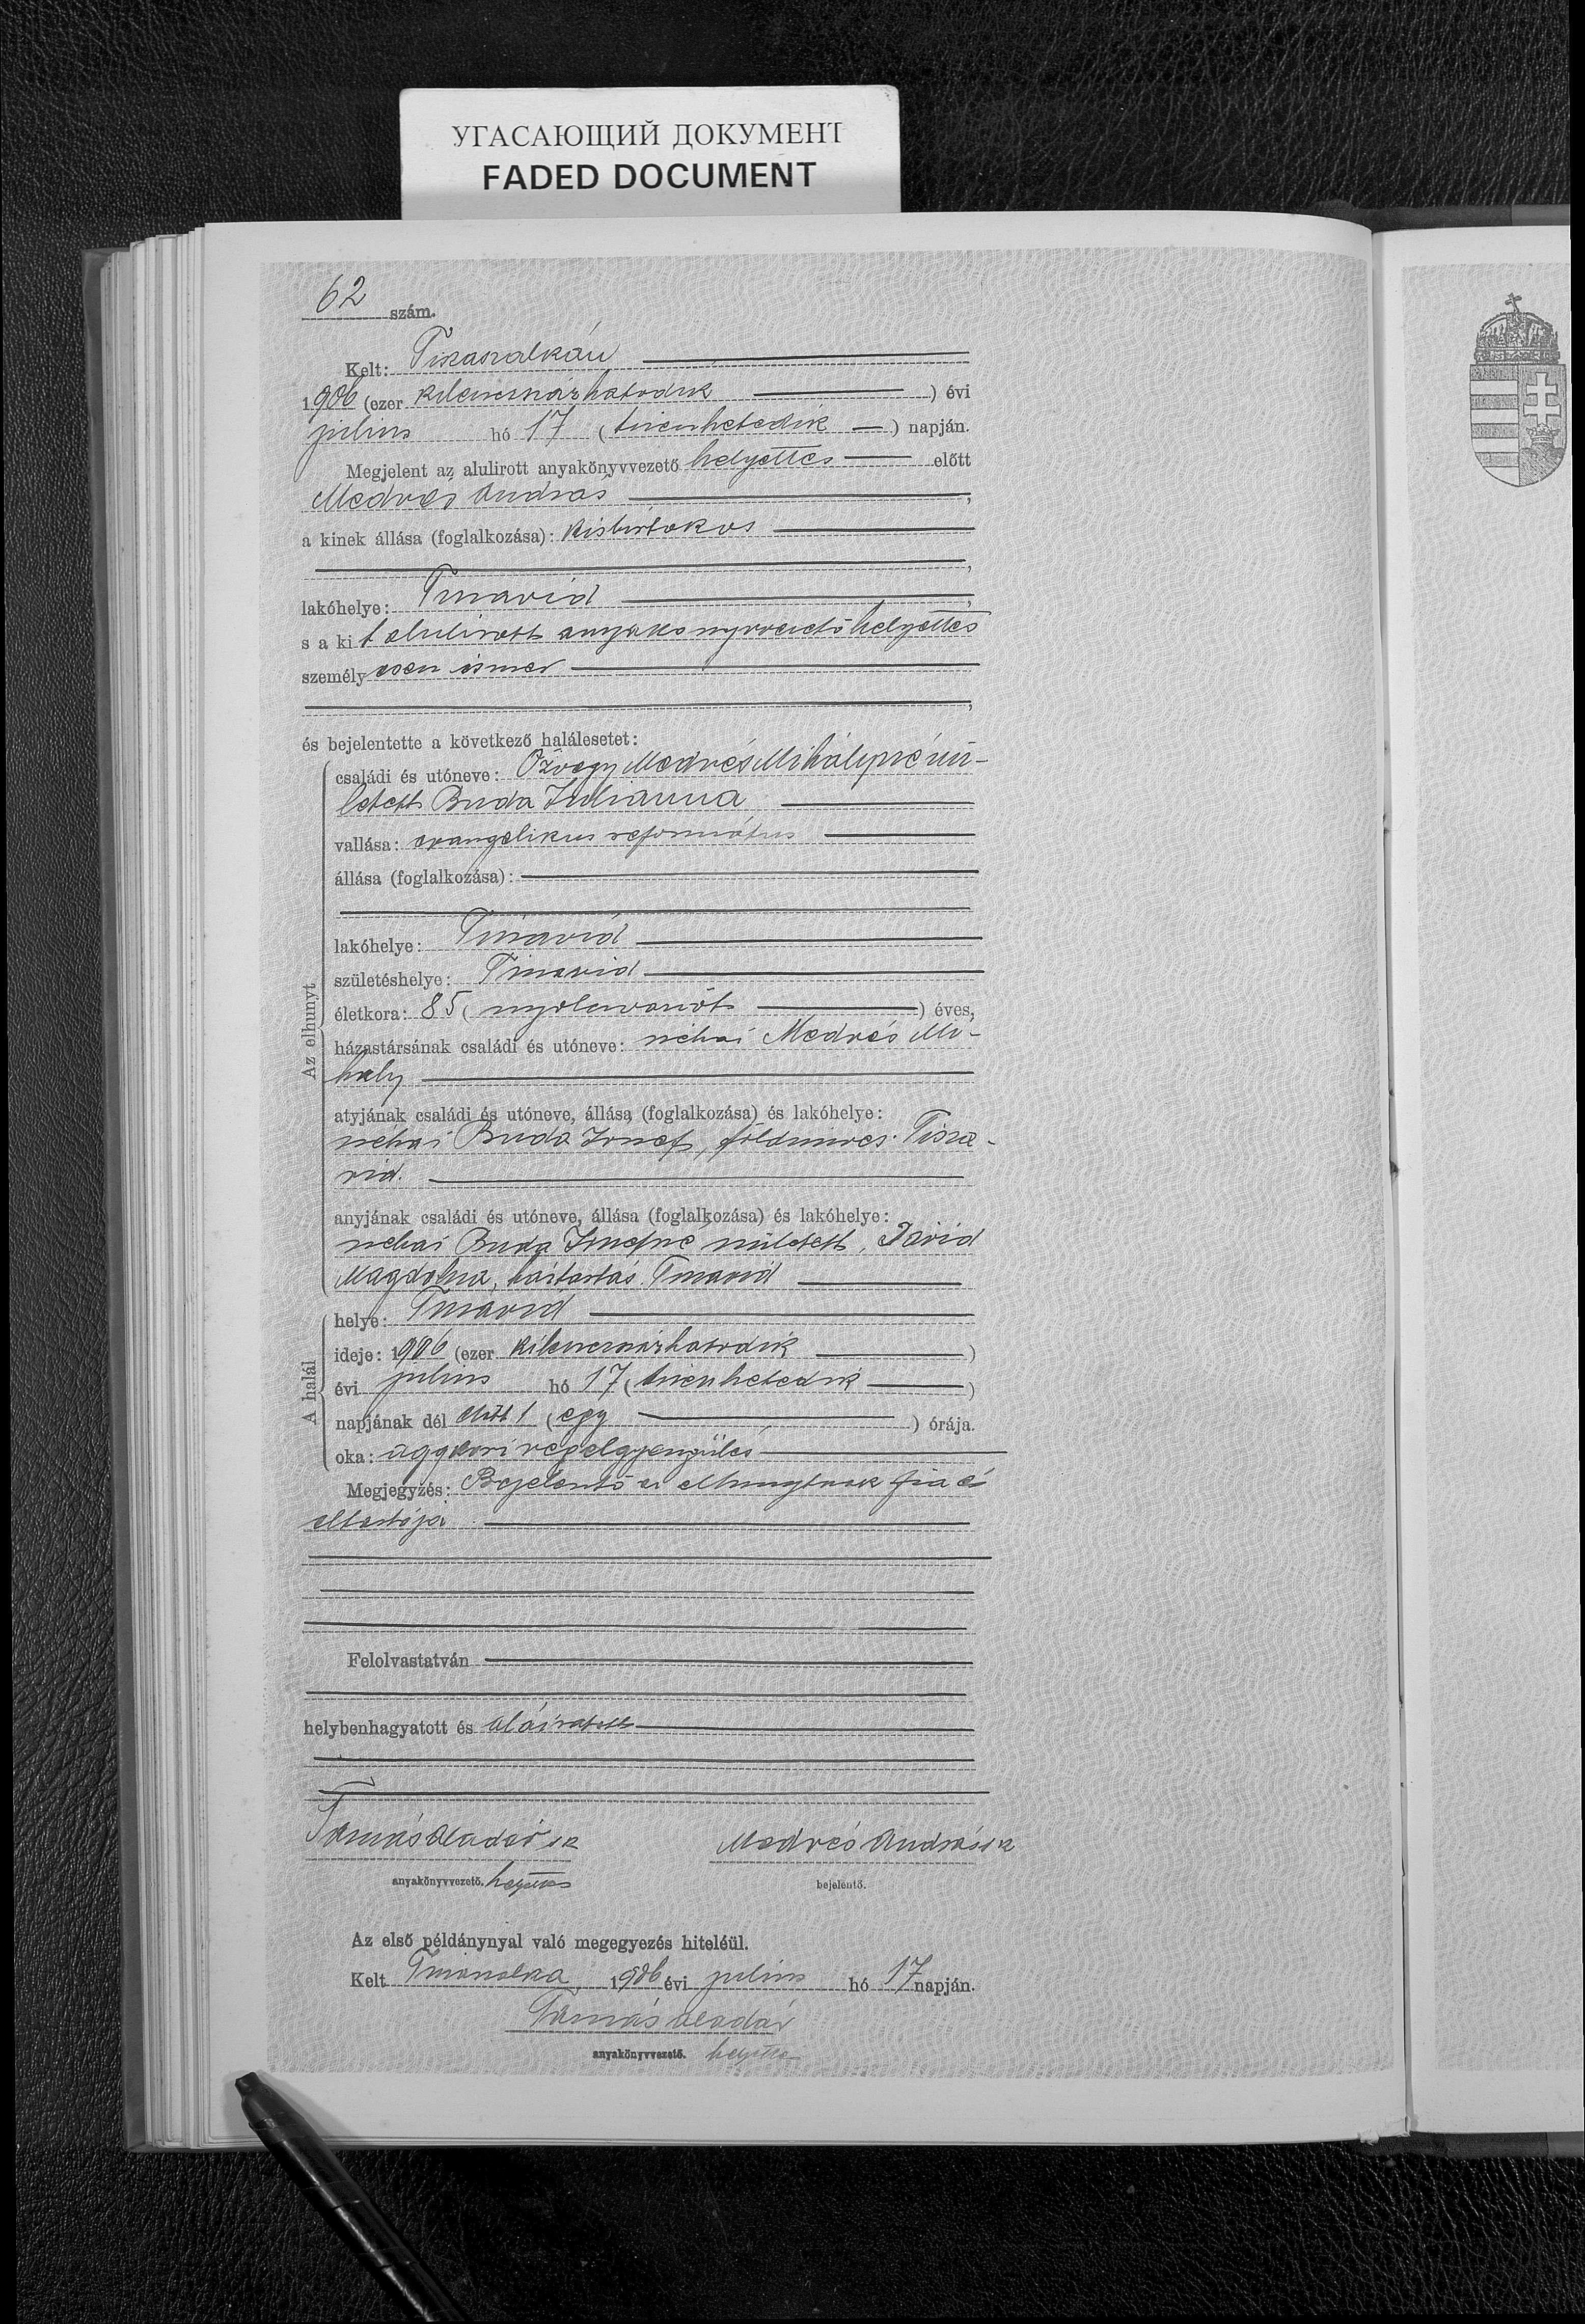 УГАСАЮЩИЙ ДОКУМЕНТ
FADED DOCUMENT
62 szám.
Kelt: Tiszaszalkán
1906 (ezer kilencszázhatodik ) évi
julius hó 17 (tizenhetedik ) napján.
Megjelent az alulirott anyakönyvvezető helyettes előtt
Medvés András ,
a kinek állása (foglalkozása): kisbirtokos
,
lakóhelye: Tiszavid ,
s a kit alulirott anyakönyvvezető helyettes
személyesen ismer
,
és bejelentette a következő halálesetet:
Az elhunyt
családi és utóneve: Özvegy Medvés Mihályné szü-
letett Buda Julianna
vallása: evangelikus református
állása (foglalkozása):
lakóhelye: Tiszavid
születéshelye: Tiszavid
életkora: 85 (nyolcvanöt ) éves,
házastársának családi és utóneve: néhai Medvés Mi-
hály
atyjának családi és utóneve, állása (foglalkozása) és lakóhelye:
néhai Buda József, földmives. Tisza-
vid.
anyjának családi és utóneve, állása (foglalkozása) és lakóhelye:
néhai Buda Józsefné született, Dávid
Magdolna, háztartás. Tiszavid
A halál
helye: Tiszavid
ideje: 1906 (ezer kilencszázhatodik )
évi julius hó 17 (tizenhetedik )
napjának dél előtt 1 (egy ) órája.
oka: aggkori végelgyengülés
Megjegyzés: Bejelentő az elhunytnak fia és
eltartója.
Felolvastatván
helybenhagyatott és aláiratott
Tamás Aladár sk Medvés András sk
anyakönyvvezető. helyettes bejelentő.
Az első példánynyal való megegyezés hiteléül.
Kelt Tiszaszalka 1906 évi julius hó 17 napján.
Tamás Aladár
anyakönyvvezető. helyettes